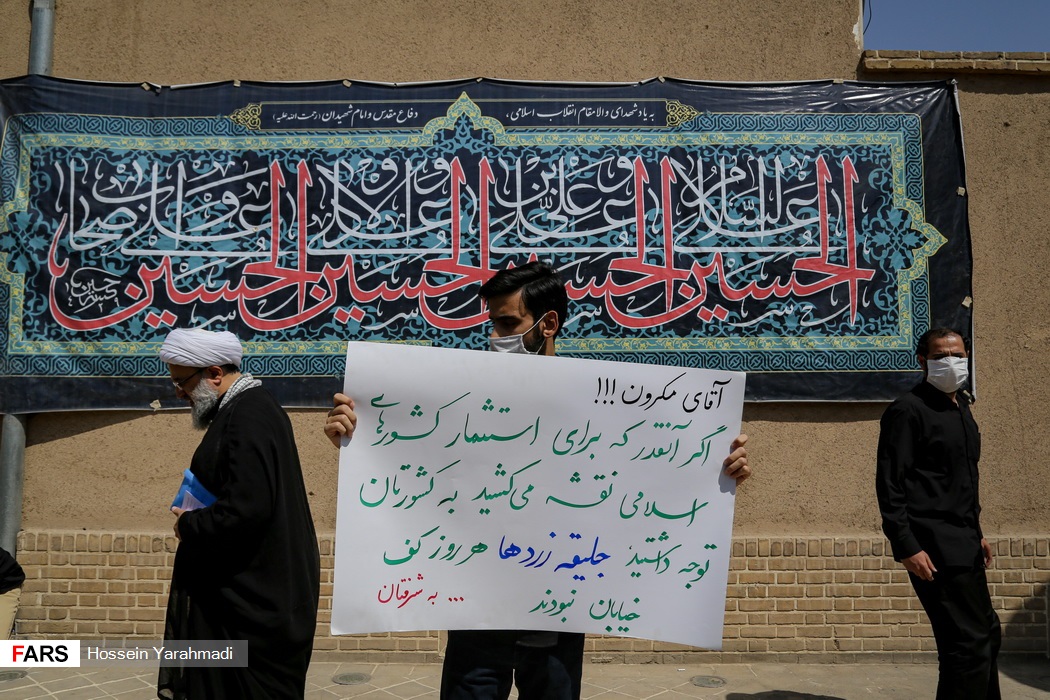 به یاد شهدای والامقام انقلاب اسلامی،
دفاع مقدس و امام شهیدان (رحمت الله علیه)
السلام علی
الحسین
و علی علی بن
الحسین
و علی اولاد
الحسین
و علی اصحاب
الحسین
آقای مکرون !!!
اگر آنقدر که برای استثمار کشورهای
اسلامی نقشه می‌کشید به کشورتان
توجه داشتید جلیقه زردها هر روز کف
خیابان نبودند
... به شرفتان
FARS
Hossein Yarahmadi